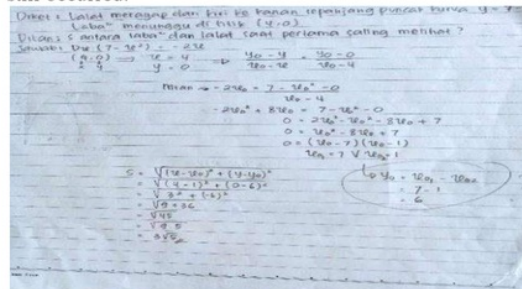 Diket : Lalat merayap dari kiri ke kanan sepanjang puncak kurva y = 7
Laba" menunggu di titik (4,0)
Ditan : S antara laba" dan lalat saat pertama saling melihat ?
Jawab : Dx (7 - x²) = -2x
(4,0) ⇒ x = 4
x y y = 0
⇒ y₀ - y / x₀ - x = y₀ - 0 / x₀ - 4
→ -2x₀ = 7 - x₀² - 0 / x₀ - 4
-2x₀² + 8x₀ = 7 - x₀² - 0
0 = 2x₀² - x₀² - 8x₀ + 7
0 = x₀² - 8x₀ + 7
0 = (x₀ - 7) (x₀ - 1)
x₀₁ = 7 V x₀₂ = 1
S = √(x - x₀)² + (y - y₀)²
= √(4 - 1)² + (0 - 6)²
= √3² + (-6)²
= √9 + 36
= √45
= √9.5
= 3√5
↳ y₀ = x₀₁ - x₀₂
= 7 - 1
= 6